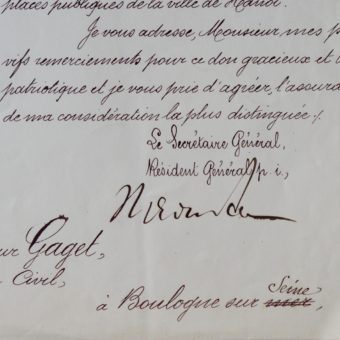 places publiques de la ville de Hanoï.
Je vous adresse, Monsieur, mes p
vifs remerciements pour ce don gracieux et
patriotique et je vous prie d'agréer, l'assura
de ma considération la plus distinguée ./.
Le Secrétaire Général,
Résident Général p. i.,
ur Gaget,
Civil,
à Boulogne sur mer Seine